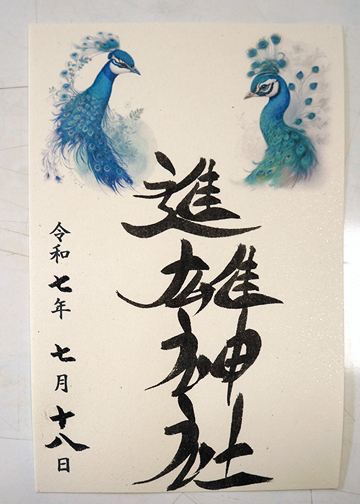 進雄神社
令和七年 七月十八日